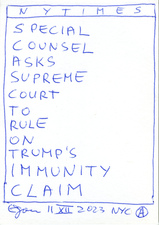 NYTIMES
SPECIAL
COUNSEL
ASKS
SUPREME
COURT
TO
RULE
ON
TRUMP'S
IMMUNITY
CLAIM
11 XII 2023 NYC A